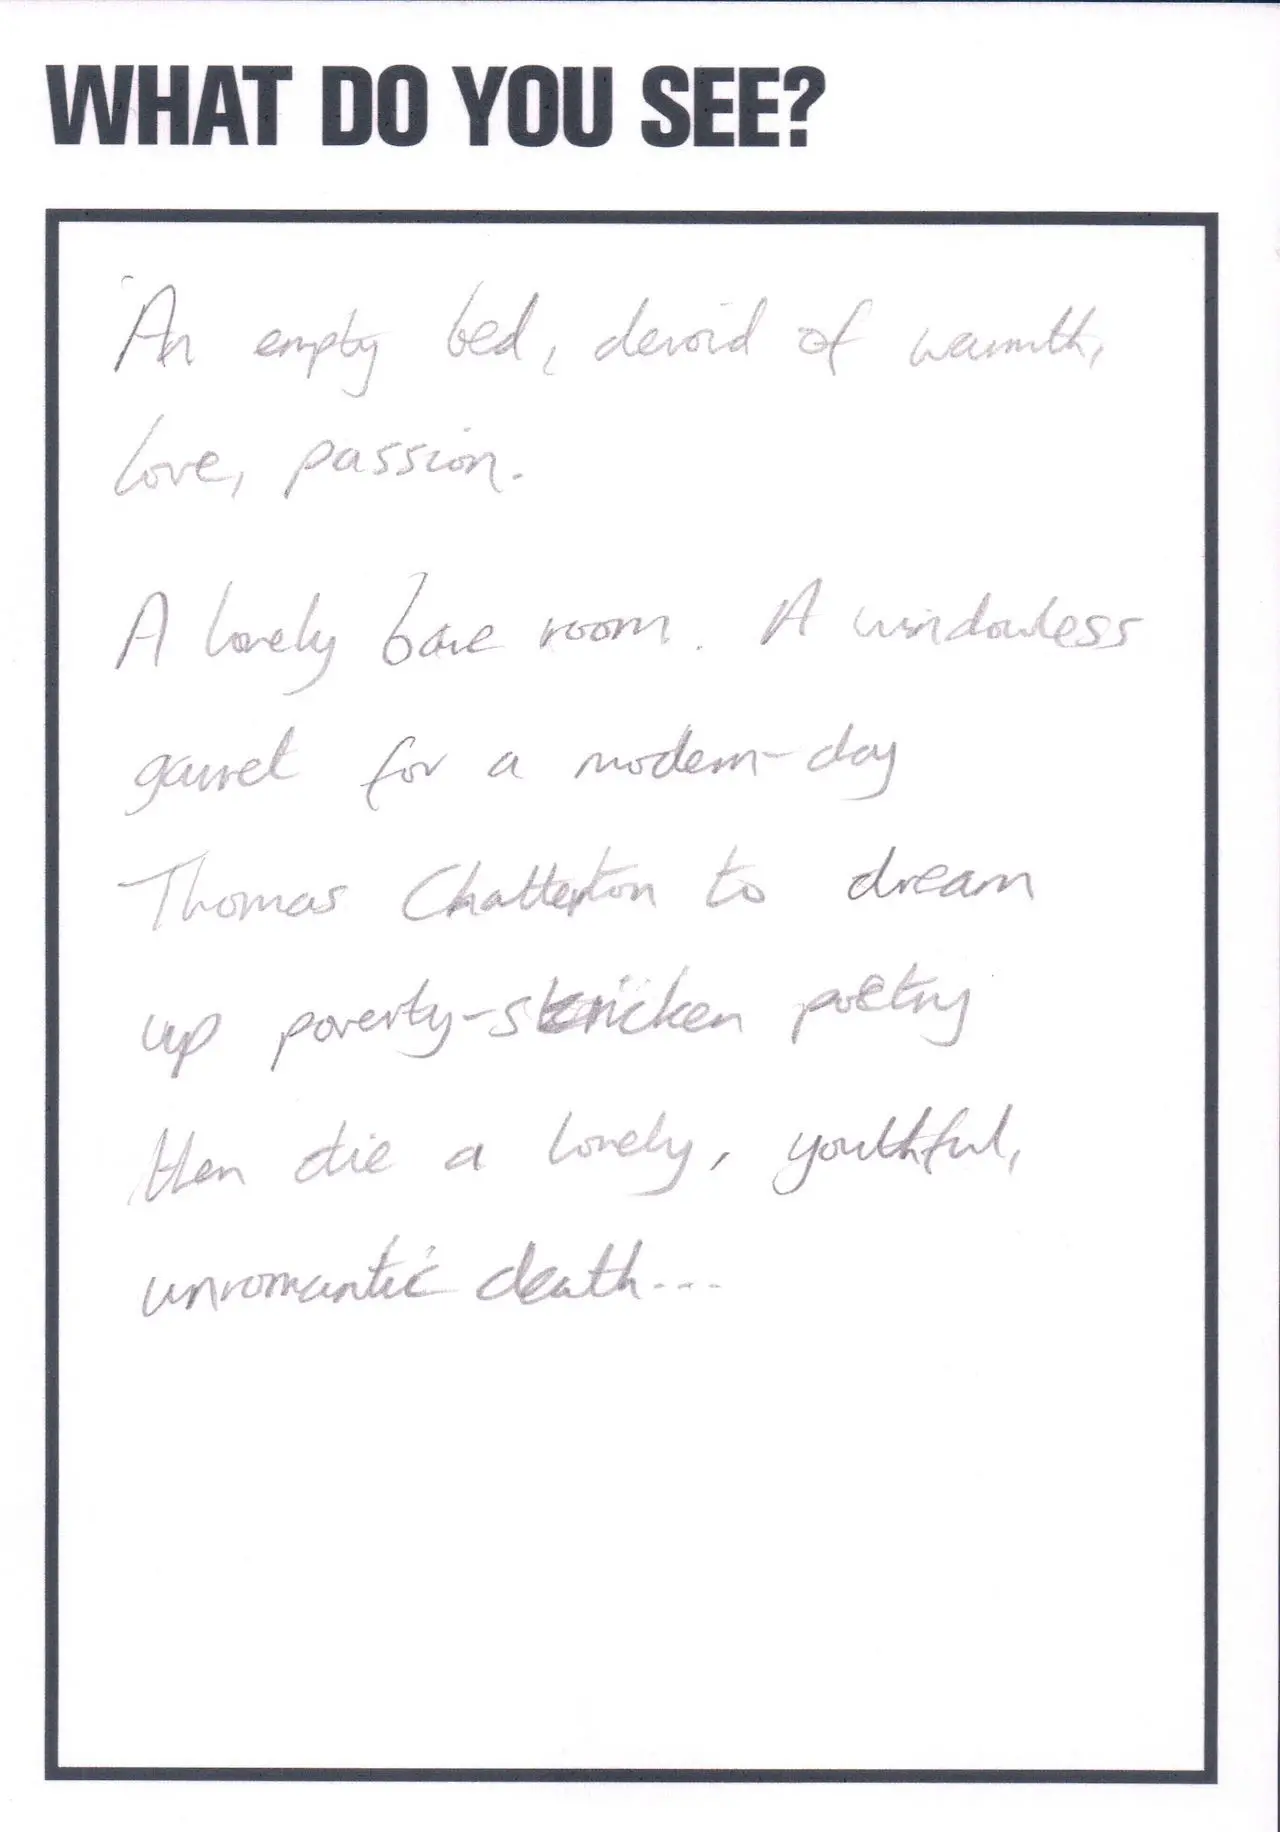 WHAT DO YOU SEE?
An empty bed, devoid of warmth,
love, passion.
A lonely bare room. A windowless
garret for a modern-day
Thomas Chatterton to dream
up poverty-stricken poetry
then die a lonely, youthful,
unromantic death...